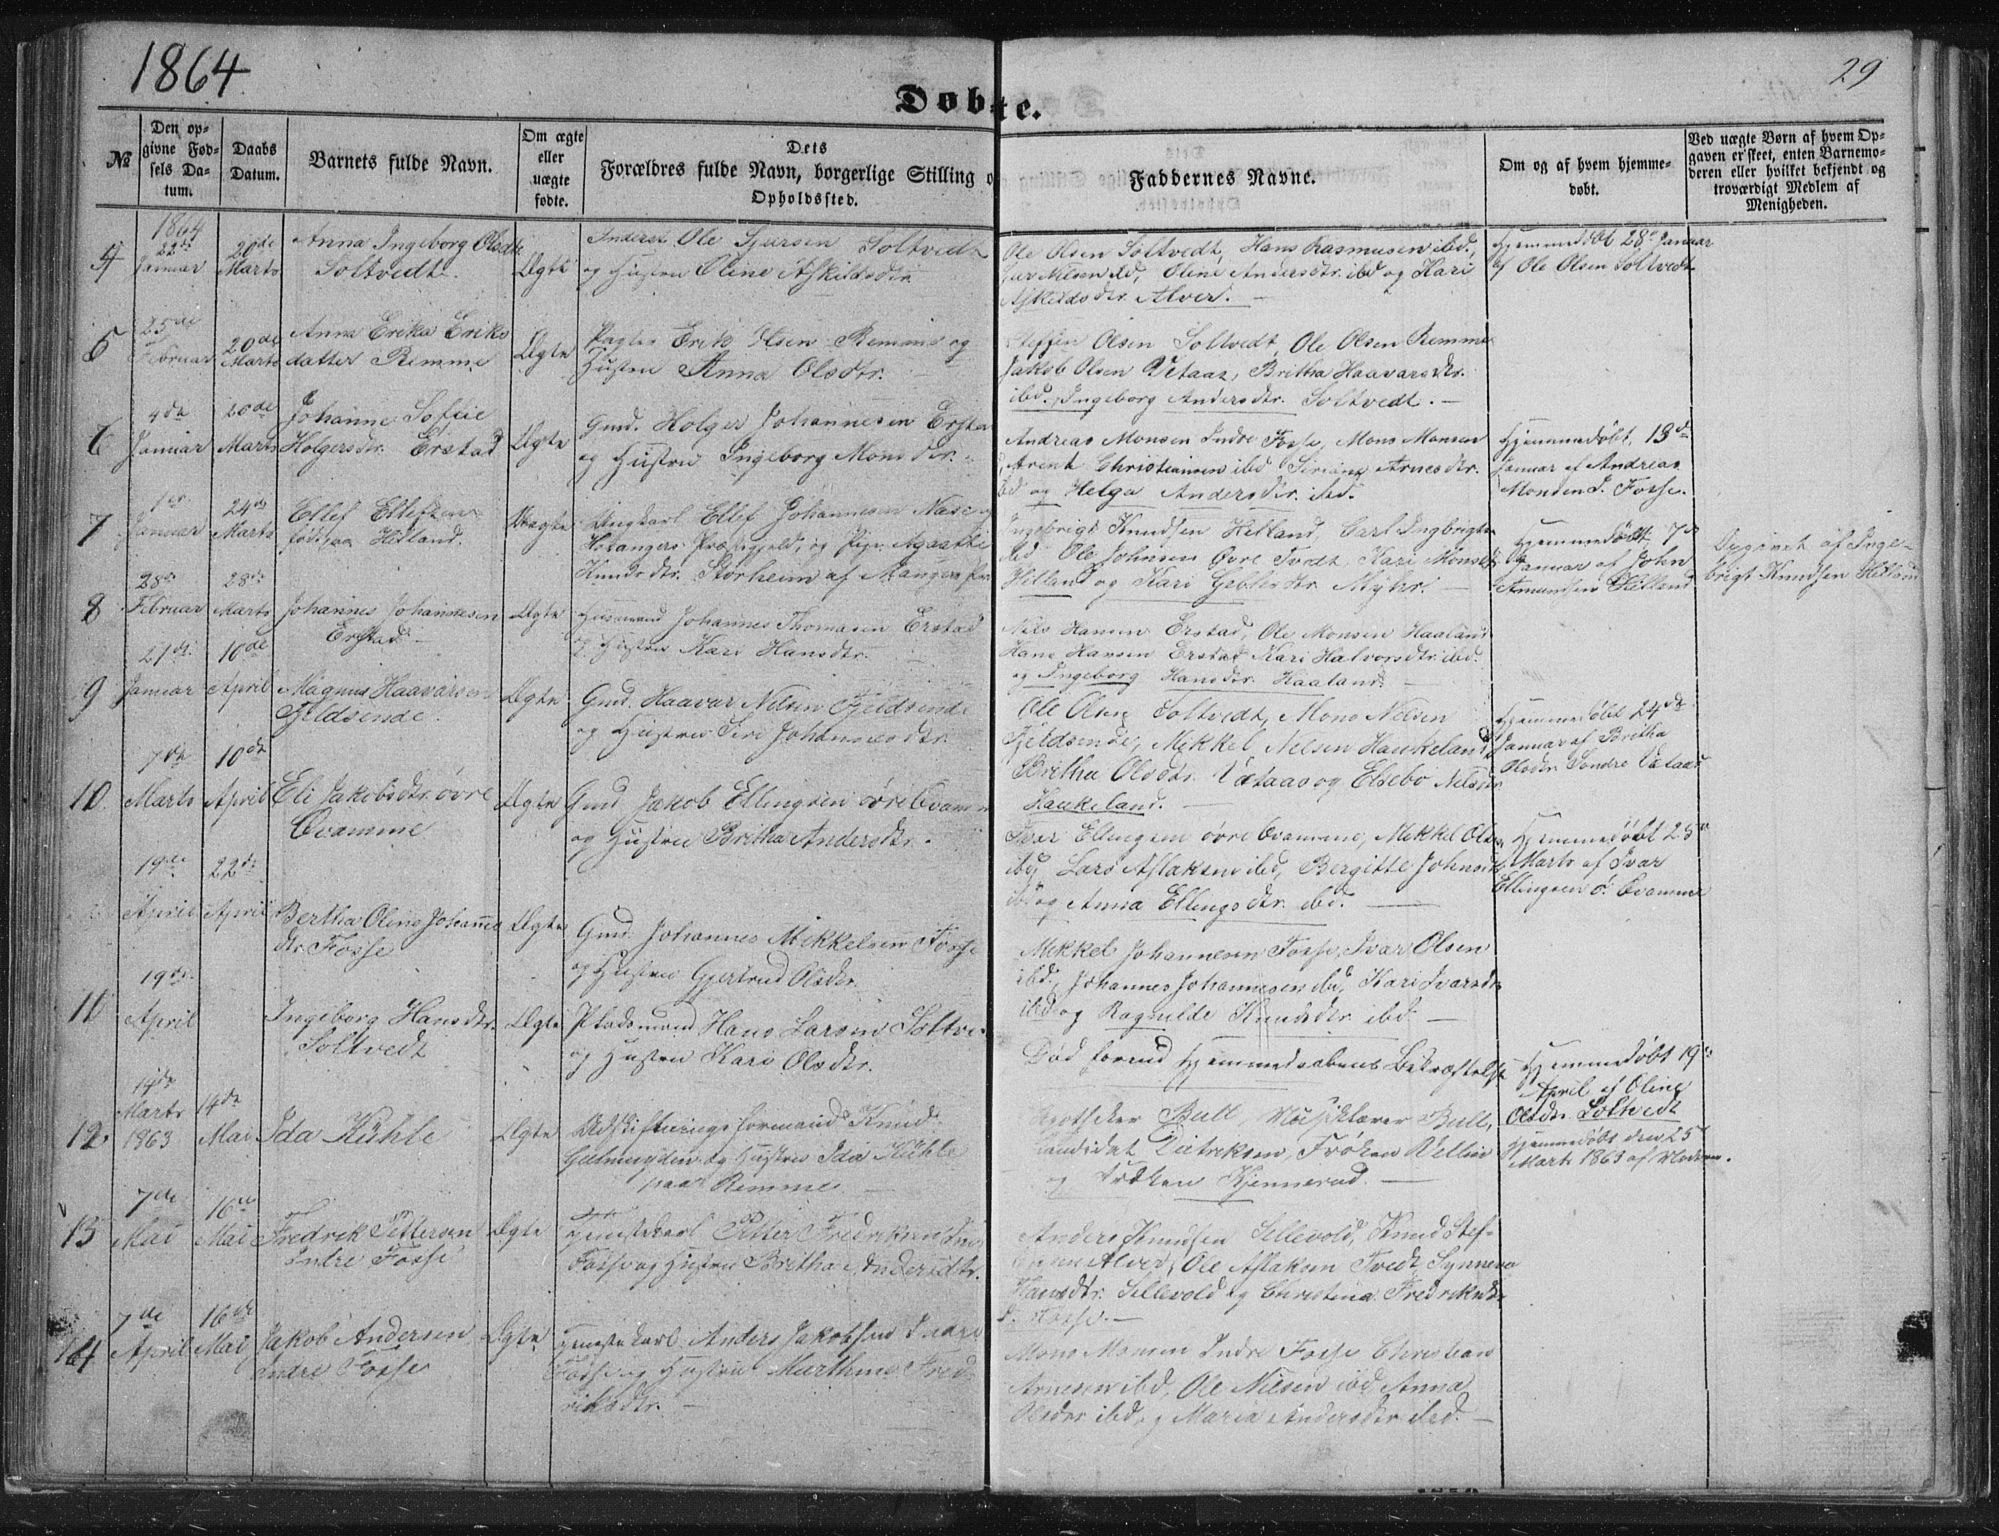 1864
29
Døbte.
№
Den opgivne Fødsels Datum.
Daabs Datum.
Barnets fulde Navn.
Om ægte eller uægte fødte.
Dets Forældres fulde Navn, borgerlige Stilling o Opholdssted.
Faddernes Navne.
Om og af hvem hjemmedøbt.
Ved uægte Børn af hvem Opgaven er skeet, enten Barnemoderen eller hvilket bekjendt og troværdigt Medlem af Menigheden.
1864
4
22de Januar
20de Marts
Anna Ingeborg Olsdtr
Soltvedt.
Ægte
Inderst Ole Sjursen Soltvedt
og Hustru Oline Askildsdtr.
Ole Olsen Soltvedt, Hans Rasmusen ibd.
Nilsen ibd, Oline Andersdtr. ibd og Kari
Askildsdtr. Alver. —
Hjemmedøbt 28de Januar
af Ole Olsen Soltvedt
5
25de Februar
20de Marts
Anna Erika Eriks
datter Remme
Ægte
Erik Olsen Remme og
Hustru Anna Olsdtr. —
Steffen Olsen Soltvedt, Ole Olsen Remme
Jakob Olsen Vetaas, Britha Haavarsdtr.
ibd. Ingeborg Andersdtr. Soltvedt. —
6
4de Januar
20de Marts
Johanne Sofie
Holgersdtr. Erstad
Ægte
Gmd. Holger Johannesen Erstad
og Hustru Ingeborg Monsdtr.
Andreas Monsen Indre Fosse, Mons Monsen
Arent Christiansen ibd Arnesdtr.
ibd og Helga Andersdtr. ibd.
Hjemmedøbt 13de
Januar af Andreas
Monsen I. Fosse.
7
1ste Januar
24de Marts
Ellef Ellefsen
født paa Hetland.
Uægte
Ungkarl Ellef Johannesen
Hosangers Præstegjeld, og Pige Agathe
Knudsdtr. Storheim af Mangers
Ingebrigt Knudsen Hetland, Carl Ingbrigtsen
ibd Ole Johnsen Øvre Tvedt, Kari Monsdtr
Hetland og Kari
Hjemmedøbt 7de
Januar af John
Amundsen Hetland
Opgivet af Inge-
brigt Knudsen Hetland
8
28de Februar
28de Marts
Johannes Johannesen
Erstad —
Ægte
Huusmand Johannes Thomasen Erstad
og Hustru Kari Hansdtr. —
Nils Hansen Erstad, Ole Monsen Haaland
Hans Hansen Erstad Kari Halvorsdtr. ibd.
og Ingeborg Hansdtr. Haaland. —
9
21de Januar
10de April
Magnus Haavarsen
Fjeldsende.
Ægte
Gmd. Haavar Nilsen Fjeldsende
og Hustru Siri Johannesdtr.
Ole Olsen Soltvedt, Mons Nilsen
Fjeldsende, Mikkel Nilsen Haukeland
Britha Olsdtr. Vetaas og Elsebo Nilsdtr.
Haukeland. —
Hjemmedøbt 24de
Januar af Britha
Olsdtr. Søndre Vetaas
10
7de Marts
10de April
Eli Jakobsdtr. øvre
Qvamme
Ægte
Gmd Jakob Ellingsen øvre Qvamme
og Hustru Britha Andersdtr. —
Ivar Ellingsen øvre Qvamme, Mikkel Olsen
ibd, Lars Aslaksen ibd, Bergitte Johnsdtr
ibd og Anna Ellingsdtr. ibd. —
Hjemmedøbt 25de
Marts af Ivar
Ellingsen ø. Qvamme
19de April
22de April
Bertha Oline Johannes
dtr. Fosse
Ægte
Gmd. Johannes Mikkelsen Fosse
og Hustru Gjertrud Olsdtr.
Mikkel Johannesen Fosse, Ivar Olsen
ibd., Johannes Johannesen ibd, Kari Ivarsdtr
ibd og Ragnilde Knudsdtr. ibd. —
11
19de April
Ingeborg Hansdtr.
Soltvedt
Ægte
Pladsmand Hans Larsen Soltve
og Hustru Kari Olsdtr.
Død forend Hjemmedaabens Bekræftelse
Hjemmedøbt 19de
April af Oline
Olsdtr. Soltvedt
12.
14de Marts 1863
14de Mai
Ida Kühle
Ægte
Udskiftningsformand Knud
og Hustru Ida Kühle
paa Remme —
Apotheker Bull, Musiklærer Bull,
Candidat Dietrekson, Frøken Vellin
og Frøken Kjennerud. —
Hjemmedøbt den 25de
Marts 1863 af Moderen.
13
7de Mai
16de Mai
Fredrik Pettersen
Indre Fosse
Ægte
Tjenestekarl Petter Fredriksen Ind
Fosse og Hustru Britha Andersdtr.
Anders Knudsen Sellevold, Knud Stef-
fensen Alver, Ole Aslaksen Tvedt, Synneva
Hansdtr. Sellevold og Christina Fredriksdtr
I. Fosse. —
14
7de April
16de Mai
Jakob Andersen
Indre Fosse
Ægte
Tjenestekarl Anders Jakobsen Indre
Fosse og Hustru Marthine Fred-
riksdtr. —
Mons Monsen Indre Fosse Christian
Arnesen ibd, Ole Nilsen ibd Anna
Olsdtr ibd, og Maria Andersdtr ibd. —